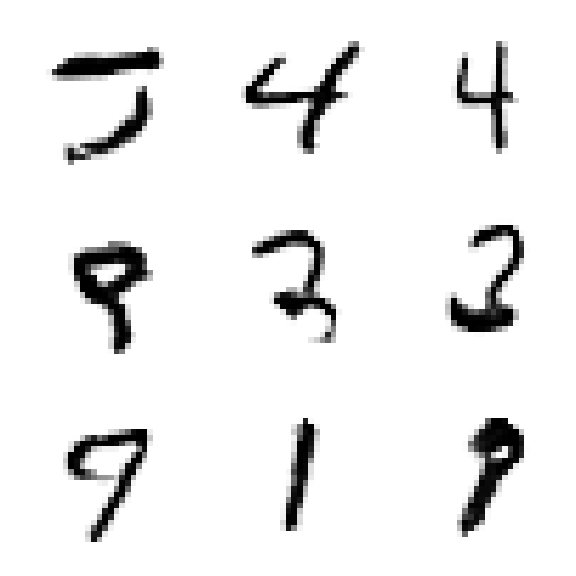 5 4 4
9 3 2
9 1 9